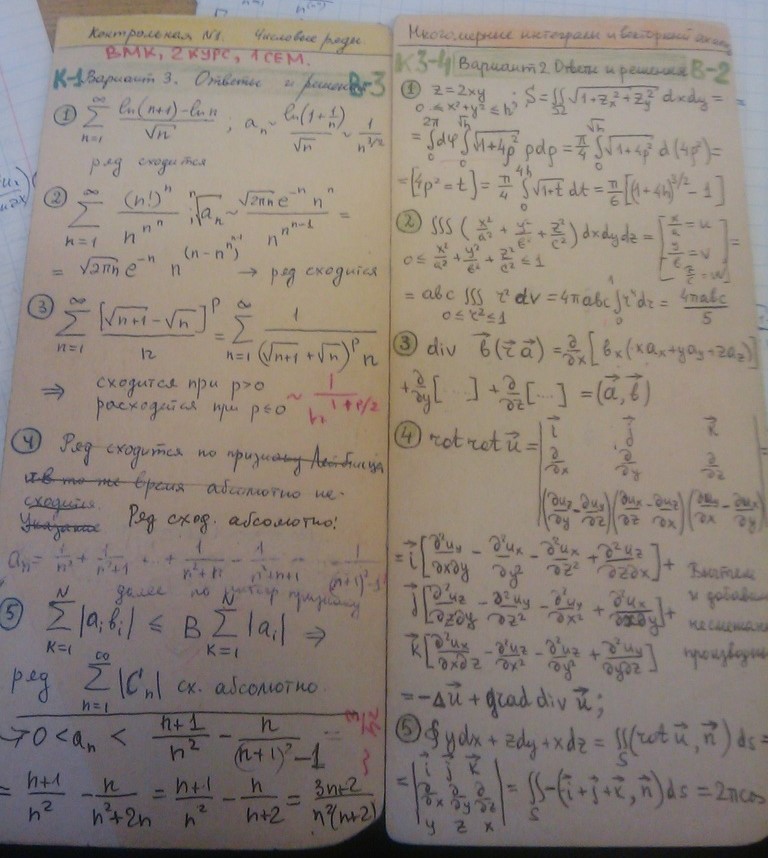 Контрольная №1. Числовые ряды.
ВМК, 2 КУРС, 1 СЕМ.
К-1 Вариант 3. Ответы и решения В-3
① \sum_{n=1}^{∞} \frac{ln(n+1)-ln n}{\sqrt{n}} ; a_n ~ \frac{ln(1+\frac{1}{n})}{\sqrt{n}} ~ \frac{1}{n^{3/2}}
ряд сходится
② \sum_{n=1}^{∞} \frac{(n!)^n}{n^{n^n}} ; \sqrt[n]{a_n} ~ \frac{\sqrt{2πn} e^{-n} n^n}{n^{n^{n-1}}} =
= \sqrt{2πn} e^{-n} n^{(n-n^{n-1})} → ряд сходится
③ \sum_{n=1}^{∞} \frac{[\sqrt{n+1}-\sqrt{n}]^p}{n} = \sum_{n=1}^{∞} \frac{1}{(\sqrt{n+1}+\sqrt{n})^p n}
⇒ сходится при p>0
расходится при p≤0 ~ \frac{1}{n^{1+p/2}}
④ Ряд сходится по признаку Лейбница,
и в то же время абсолютно не-
сходится.
Указание Ряд сход. абсолютно!
a_n = \frac{1}{n^2} + \frac{1}{n^2+1} + .. + \frac{1}{n^2+n} - \frac{1}{n^2+n+1} - \frac{1}{(n+1)^2-1}
далее по признаку
⑤ \sum_{k=1}^{N} |a_i b_i| ≤ B \sum_{k=1}^{N} |a_i| ⇒
ряд \sum_{n=1}^{∞} |C_n| сх. абсолютно.
→ 0 < a_n < \frac{n+1}{n^2} - \frac{n}{(n+1)^2-1} =
= \frac{n+1}{n^2} - \frac{n}{n^2+2n} = \frac{n+1}{n^2} - \frac{n}{n+2} = \frac{3n+2}{n^2(n+2)}
Многомерные интегралы и векторный анализ
К3-4 Вариант 2 Ответы и решения В-2
① z=2xy ; S = \iint_Ω \sqrt{1+z_x^2+z_y^2} dxdy =
0 ≤ x²+y² ≤ h
= \int_0^{2π} dφ \int_0^{\sqrt{h}} \sqrt{1+4ρ²} ρdρ = \frac{π}{4} \int_0^{\sqrt{h}} \sqrt{1+4ρ²} d(4ρ²) =
= [4ρ²=t] = \frac{π}{4} \int_0^{4h} \sqrt{1+t} dt = \frac{π}{6} [(1+4h)^{3/2} - 1]
② ∭ (\frac{x²}{a²} + \frac{y²}{b²} + \frac{z²}{c²}) dxdydz = [\frac{x}{a} = u \frac{y}{b} = v \frac{z}{c} = w] =
0 ≤ \frac{x²}{a²} + \frac{y²}{b²} + \frac{z²}{c²} ≤ 1
= abc ∭_{0≤r²≤1} r² dv = 4πabc \int_0^1 r⁴dr = \frac{4πabc}{5}
③ div \vec{b}(\vec{r} \vec{a}) = \frac{∂}{∂x} [b_x(xa_x+ya_y+za_z)]
+ \frac{∂}{∂y} [...] + \frac{∂}{∂z} [...] = (\vec{a}, \vec{b})
④ rot rot \vec{u} = | \vec{i} \vec{j} \vec{k} | =
\frac{∂}{∂x} \frac{∂}{∂y} \frac{∂}{∂z}
(\frac{∂u_z}{∂y} - \frac{∂u_y}{∂z}) (\frac{∂u_x}{∂z} - \frac{∂u_z}{∂x}) (\frac{∂u_y}{∂x} - \frac{∂u_x}{∂y})
= \vec{i} [\frac{∂²u_y}{∂x∂y} - \frac{∂²u_x}{∂y²} - \frac{∂²u_x}{∂z²} + \frac{∂²u_z}{∂z∂x}] +
\vec{j} [\frac{∂²u_z}{∂z∂y} - \frac{∂²u_y}{∂z²} - \frac{∂²u_y}{∂x²} + \frac{∂²u_x}{∂x∂y}] +
\vec{k} [\frac{∂²u_x}{∂x∂z} - \frac{∂²u_z}{∂x²} - \frac{∂²u_z}{∂y²} + \frac{∂²u_y}{∂y∂z}]
и
= -Δ\vec{u} + grad div \vec{u};
⑤ ∮ ydx + zdy + xdz = \iint_S (rot \vec{u}, \vec{n}) ds =
= | \vec{i} \vec{j} \vec{k} | = \iint_S -(\vec{i}+\vec{j}+\vec{k}, \vec{n}) ds = 2πcos
\frac{∂}{∂x} \frac{∂}{∂y} \frac{∂}{∂z}
y z x